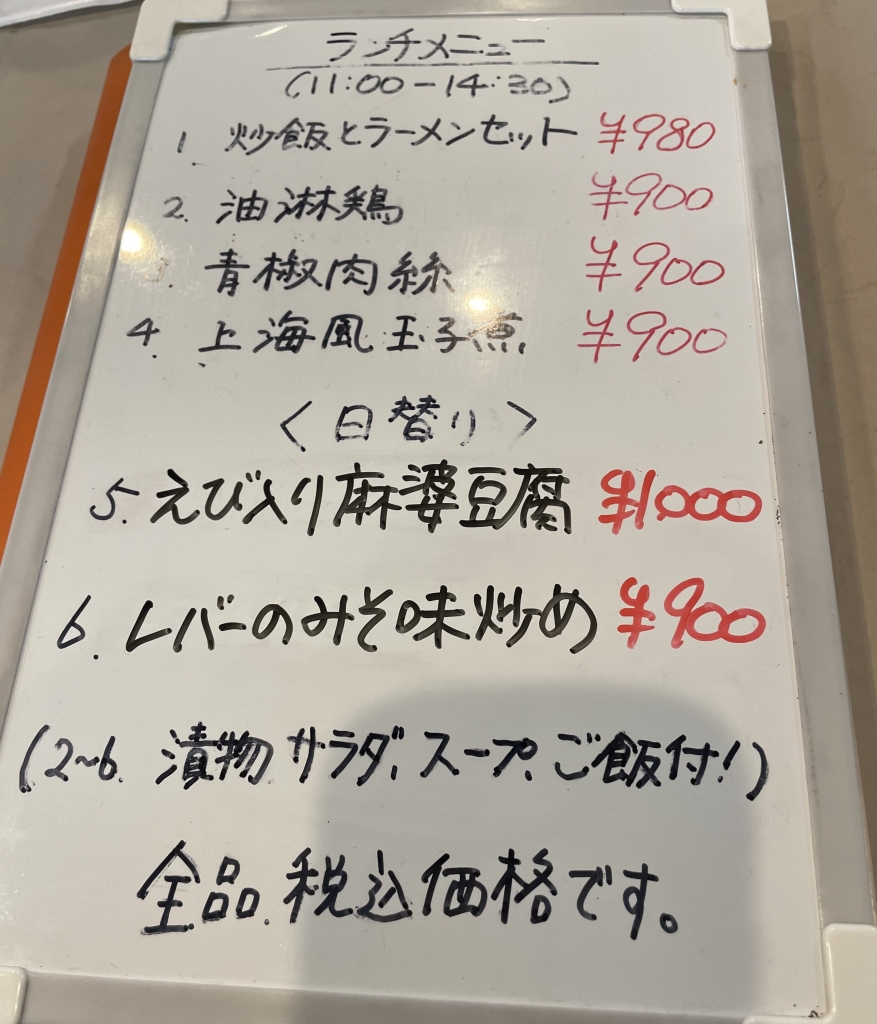 ランチメニュー
(11:00-14:30)
1. 炒飯とラーメンセット ¥980
2. 油淋鶏 ¥900
3. 青椒肉絲 ¥900
4 上海風玉子煮 ¥900
〈日替り〉
5. えび入り麻婆豆腐 ¥1,000
6. レバーのみそ味炒め ¥900
(2~6. 漬物、サラダ、スープ、ご飯付!)
全品、税込価格です。